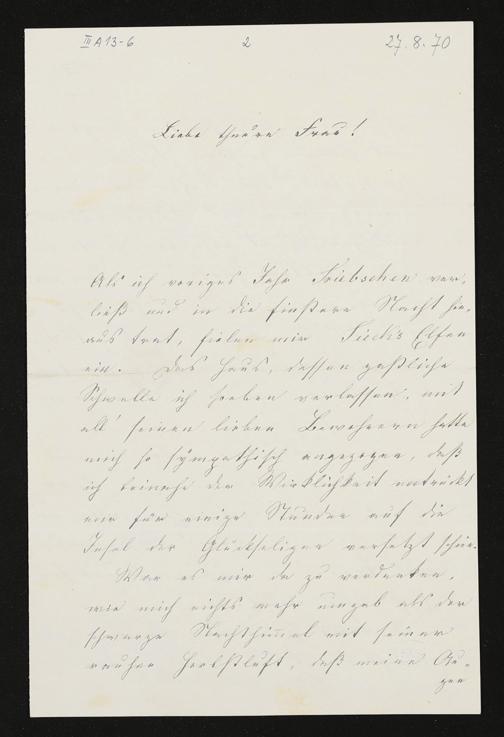 III A 13-6 2 27.8.70
Liebe theure Frau!
Als ich voriges Jahr Triebschen ver-
ließ und in die finstere Nacht hin-
aus trat, fielen mir Tieck's Elfen
ein. Das Haus, dessen gastliche
Schwelle ich soeben verlassen, mit
all' seinen lieben Bewohnern hatte
mich so sympathisch angezogen, daß
ich beinahe der Wirklichkeit entrückt
nur für einige Stunden auf die
Insel der Glückseligen versetzt schien.
War es mir da zu verdenken,
wie mich nichts mehr umgab als der
schwarze Nachthimmel mit seiner
rauhen Herbstluft, daß meine Au-
gen